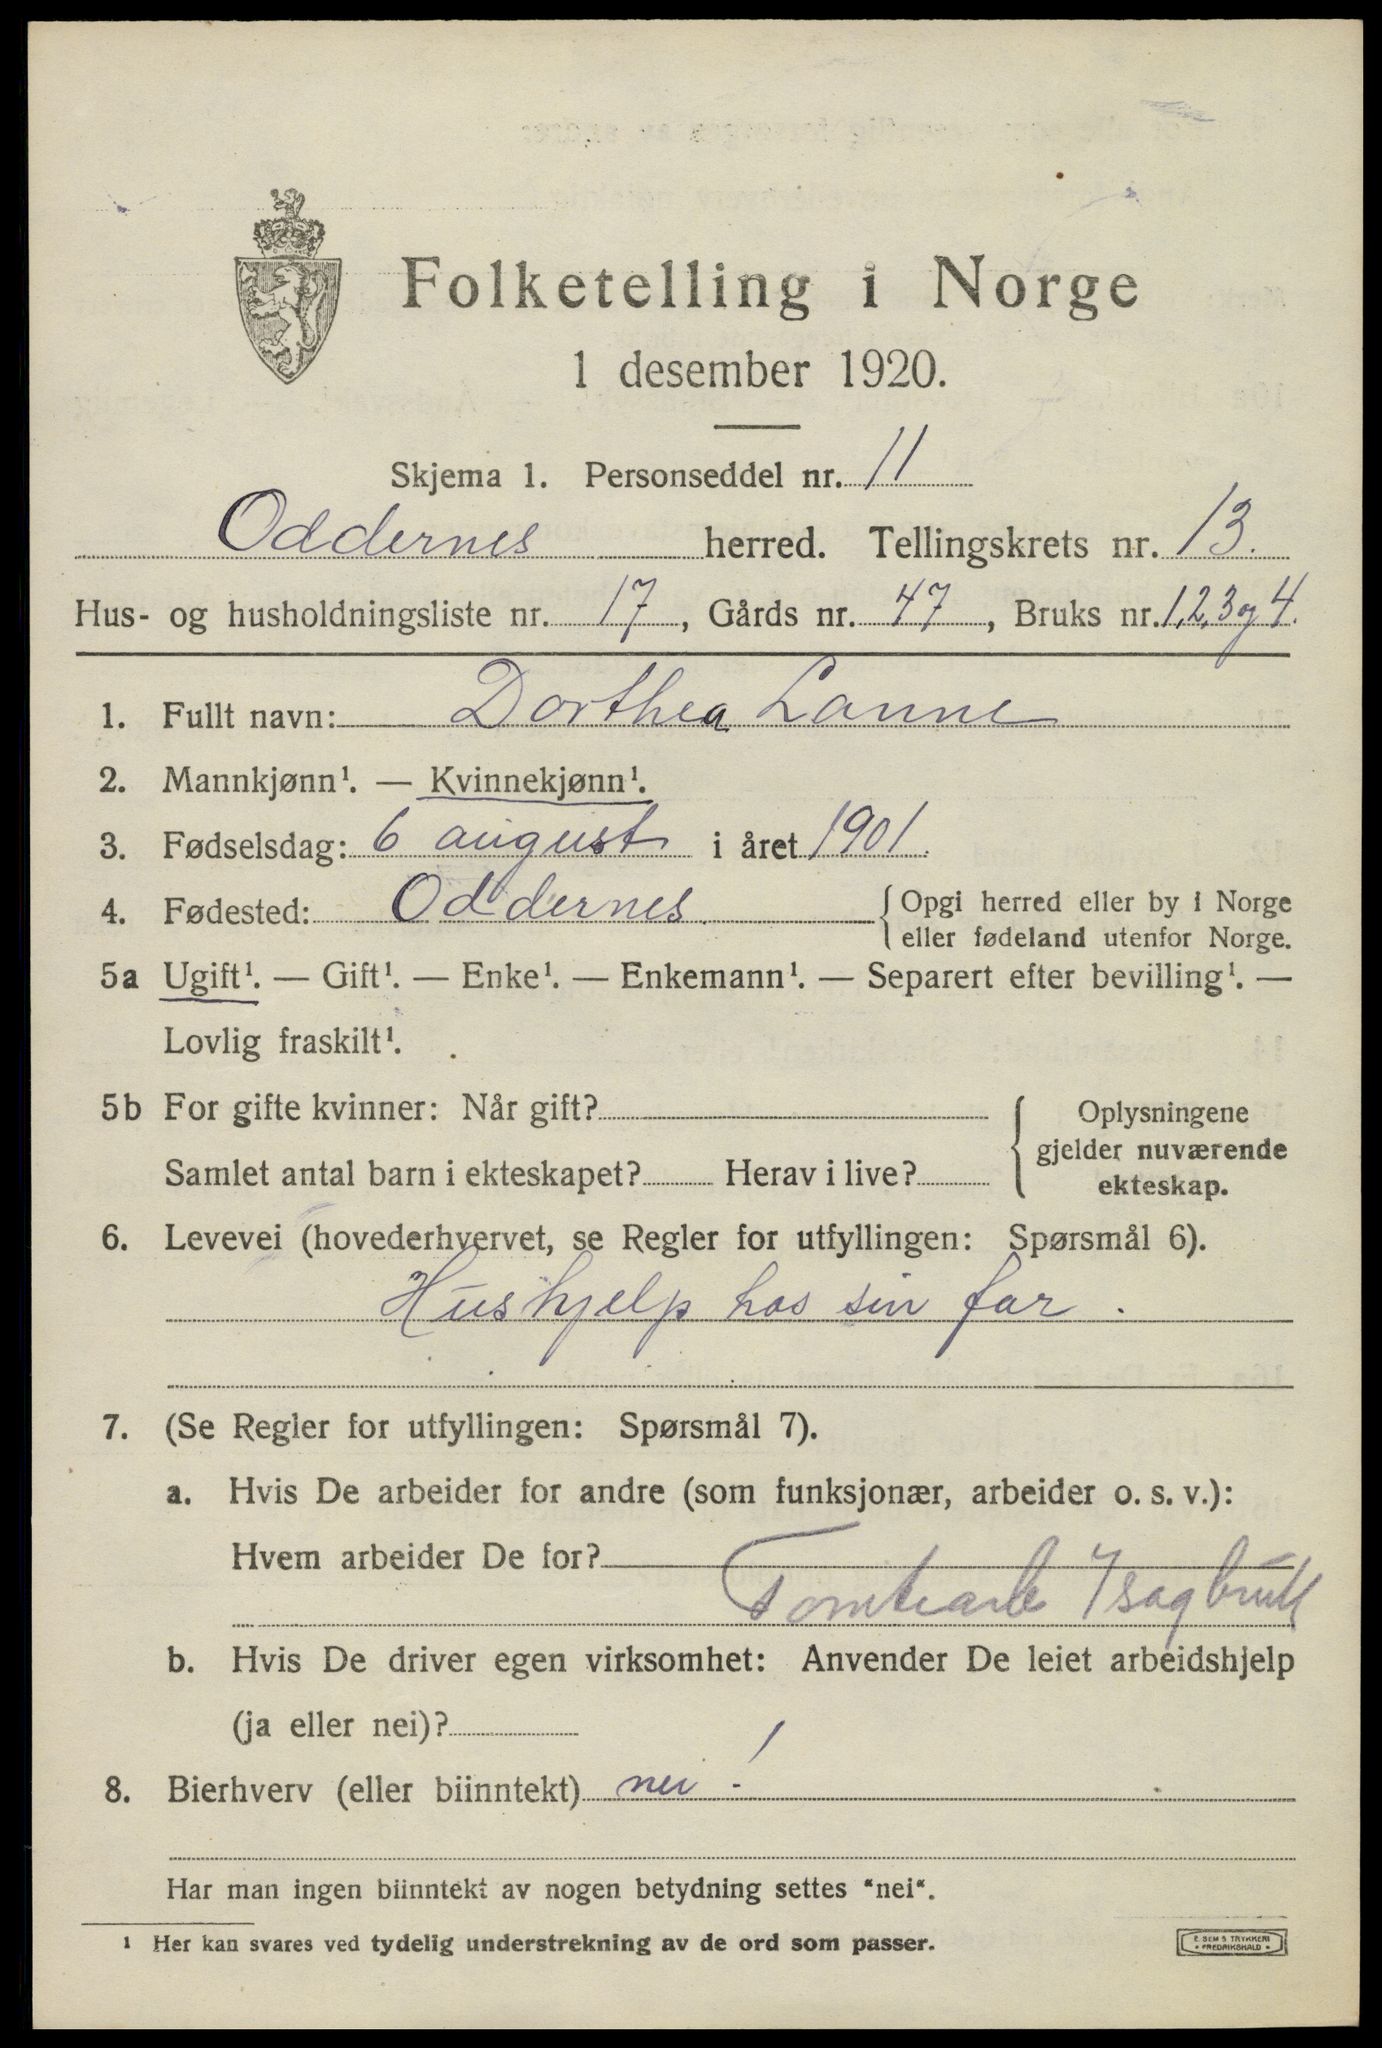 Folketelling i Norge
1 desember 1920.
Skjema 1. Personseddel nr. 11
Oddernes herred. Tellingskrets nr. 13.
Hus- og husholdningsliste nr. 17, Gårds nr. 47, Bruks nr. 1,2,3 og 4.
1. Fullt navn: Dorthea Lanne
2. Mannkjønn¹. — Kvinnekjønn¹.
3. Fødselsdag: 6 august i året 1901.
4. Fødested: Oddernes. { Opgi herred eller by i Norge
eller fødeland utenfor Norge.
5a Ugift¹. — Gift¹. — Enke¹. — Enkemann¹. — Separert efter bevilling¹. —
Lovlig fraskilt¹.
5b For gifte kvinner: Når gift? { Oplysningene
gjelder nuværende
Samlet antal barn i ekteskapet? Herav i live?
ekteskap.
6. Levevei (hovederhvervet, se Regler for utfyllingen: Spørsmål 6).
Hushjelp hos sin far.
7. (Se Regler for utfyllingen: Spørsmål 7).
a. Hvis De arbeider for andre (som funksjonær, arbeider o. s. v.):
Hvem arbeider De for?
Tomtearb
b. Hvis De driver egen virksomhet: Anvender De leiet arbeidshjelp
(ja eller nei)?
8. Bierhverv (eller biinntekt) nei!
Har man ingen biinntekt av nogen betydning settes "nei".
¹ Her kan svares ved tydelig understrekning av de ord som passer.
E. SEM'S TRYKKERI
• FREDRIKSHALD •